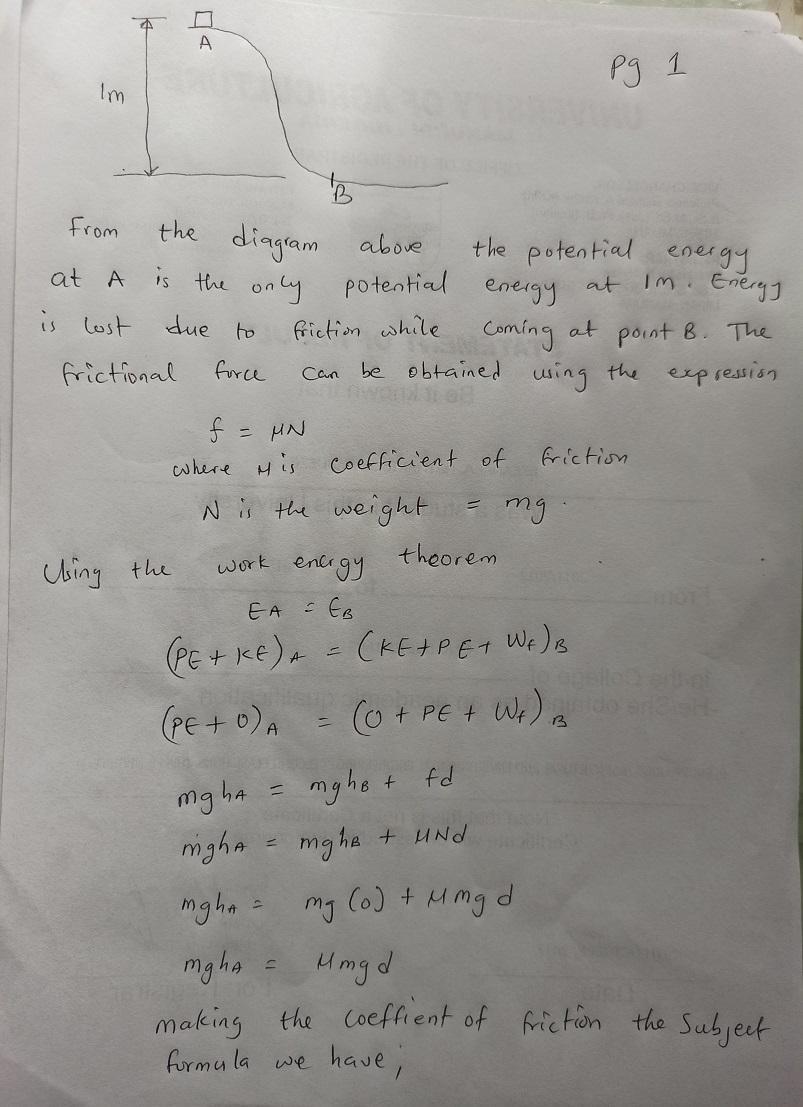 pg 1
A
1m
B
From the diagram above the potential energy
at A is the only potential energy at 1m. Energy
is lost due to friction while coming at point B. The
frictional force can be obtained using the expression
f = μN
where μ is coefficient of friction
N is the weight = mg.
Using the work energy theorem
EA = EB
(PE + KE)A = (KE + PE + Wf)B
(PE + 0)A = (0 + PE + Wf)B
mghA = mghB + fd
mghA = mghB + μNd
mghA = mg(0) + μmgd
mghA = μmgd
making the coeffient of friction the subject
formula we have;